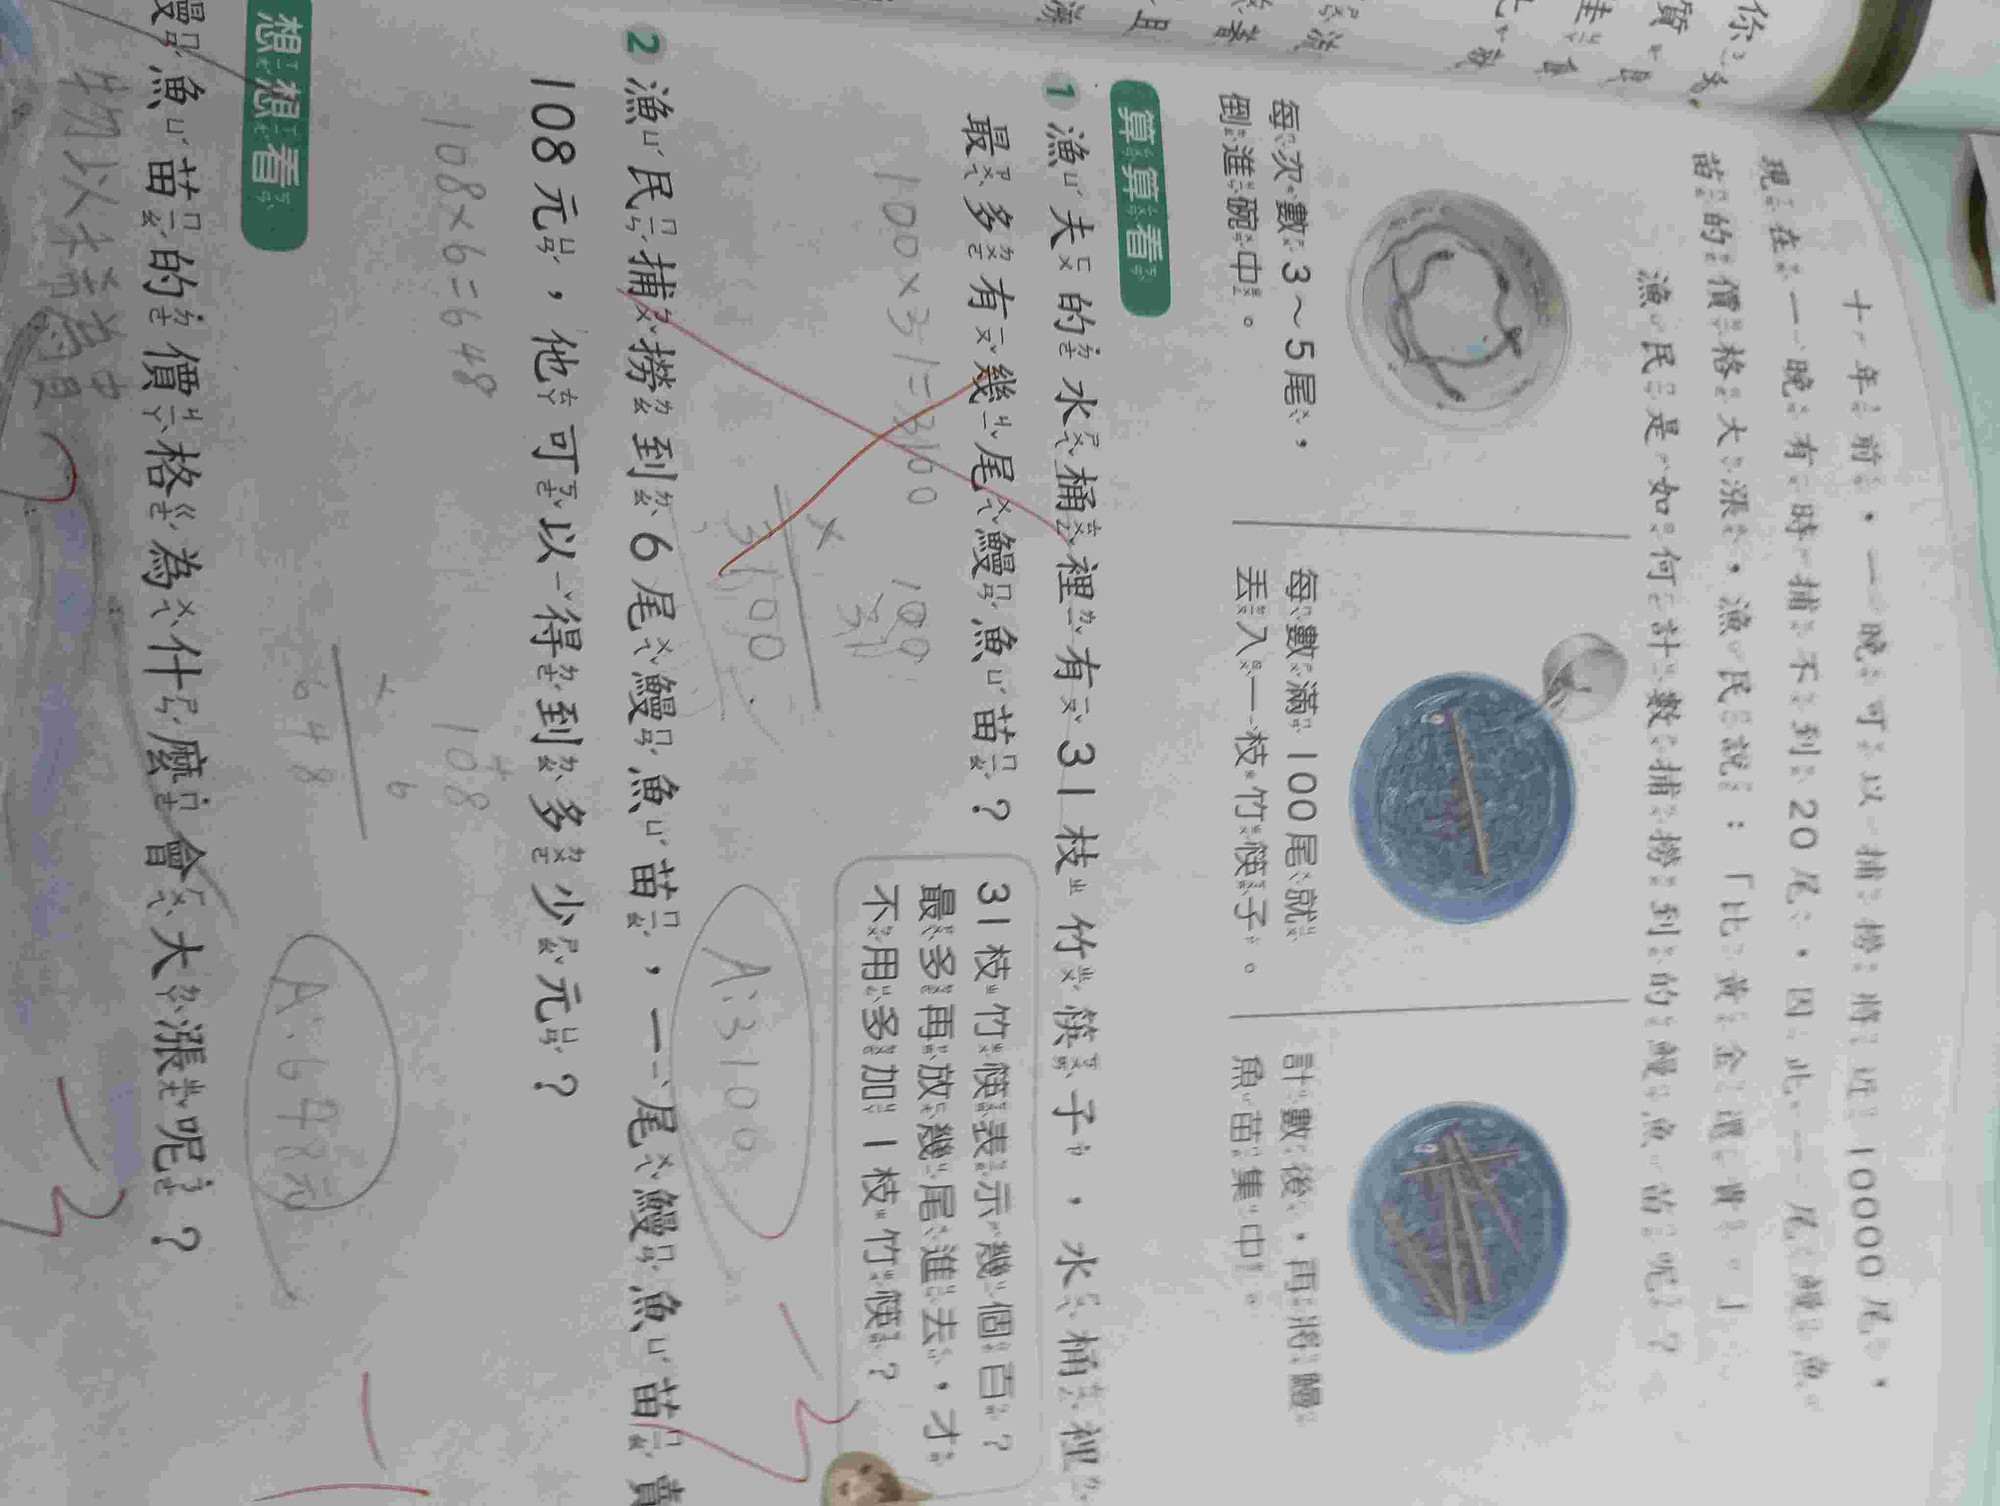 十年前，一晚可以捕撈將近10000尾，
現在一晚有時捕不到20尾，因此一尾鰻魚
苗的價格大漲，漁民說：「比黃金還貴。」
漁民是如何計數捕撈到的鰻魚苗呢？
每次數3～5尾，
倒進碗中。
每數滿100尾就
丟入一枝竹筷子。
計數後，再將鰻
魚苗集中。
算算看
1 漁夫的水桶裡有31枝竹筷子，水桶裡
最多有幾尾鰻魚苗？
31枝竹筷表示幾個百？
最多再放幾尾進去，才
不用多加1枝竹筷？
100×31=3100
100
× 31
3100
A:3100
2 漁民捕撈到6尾鰻魚苗，一尾鰻魚苗賣
108元，他可以得到多少元？
108×6=648
108
× 6
648
A:648元
想想看
鰻魚苗的價格為什麼會大漲呢？
物以稀為貴